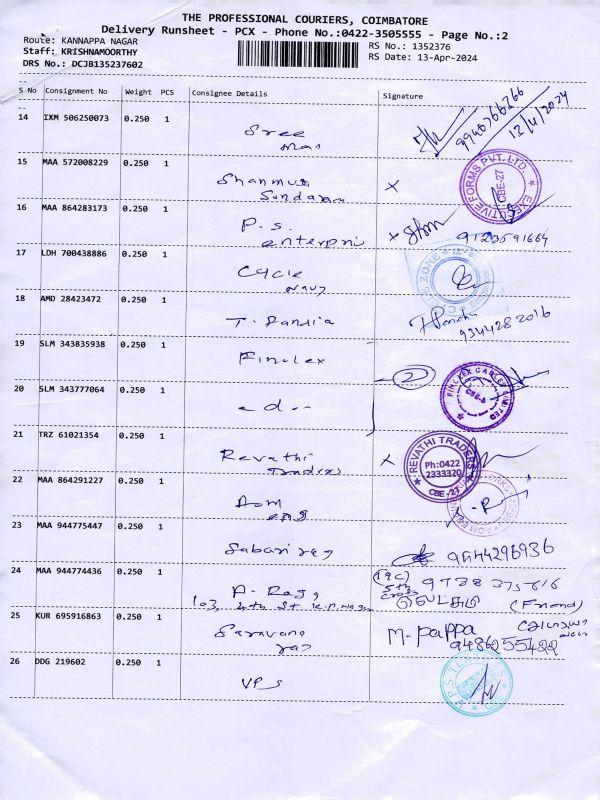 THE PROFESSIONAL COURIERS, COIMBATORE
Delivery Runsheet - PCX - Phone No.:0422-3505555 - Page No.:2
Route: KANNAPPA NAGAR
Staff: KRISHNAMOORTHY
DRS No.: DCJB135237602
RS No.: 1352376
RS Date: 13-Apr-2024
S No Consignment No Weight PCS Consignee Details Signature
14 IXM 506250073 0.250 1 Sree
9940766266
12/4/2024
15 MAA 572008229 0.250 1 Shanmuga
Sundaram X
EXECUTIVE FORMS PVT. LTD.
CBE-27
16 MAA 864283173 0.250 1 P.S.
enterpri X 9123591664
17 LDH 700438886 0.250 1 Cycle
ZONE
18 AMD 28423472 0.250 1 T. Pandia
9344282016
19 SLM 343835938 0.250 1 Finolex
20 SLM 343777064 0.250 1 - do - 2
FINOLEX CABLES LIMITED
CBE-6
21 TRZ 61021354 0.250 1 Revathi
Traders X
REVATHI TRADERS
Ph:0422
2333320
CBE-27
22 MAA 864291227 0.250 1 AOM
eng
23 MAA 944775447 0.250 1 Sabari raj 9544296936
24 MAA 944774436 0.250 1 A. Raja
103, 4th St K.P. Nagar
(19c) 5th cross 9738 375616
(Friend)
25 KUR 695916863 0.250 1 Saravana
raj M. Pappa
9486255422
26 DDG 219602 0.250 1 VPS